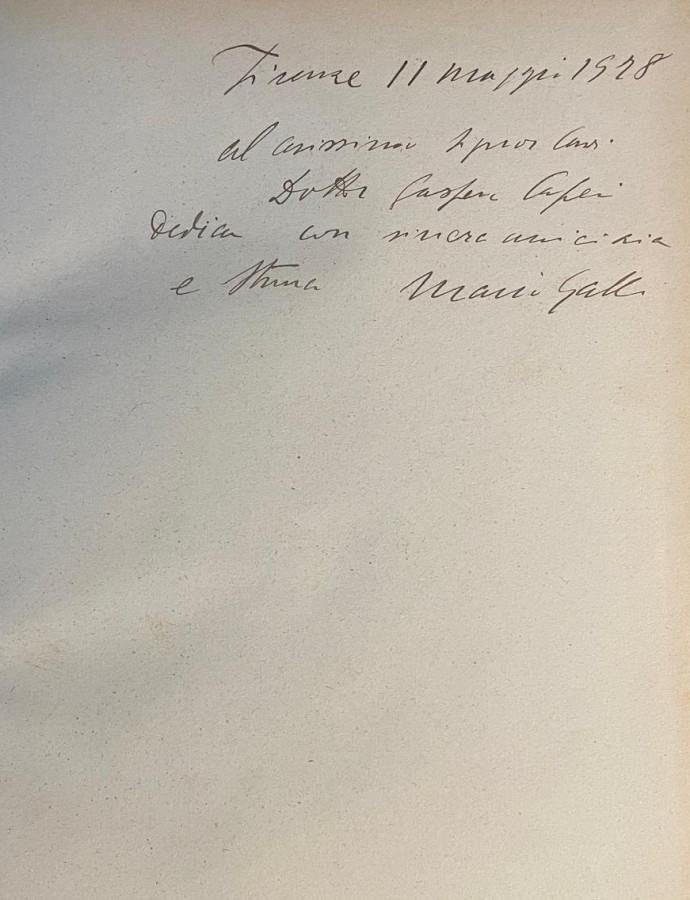 Firenze 11 maggio 1928
al carissimo signor Cav.
Dottor Gaspare
Dedica con sincera amicizia
e stima Mario Galli